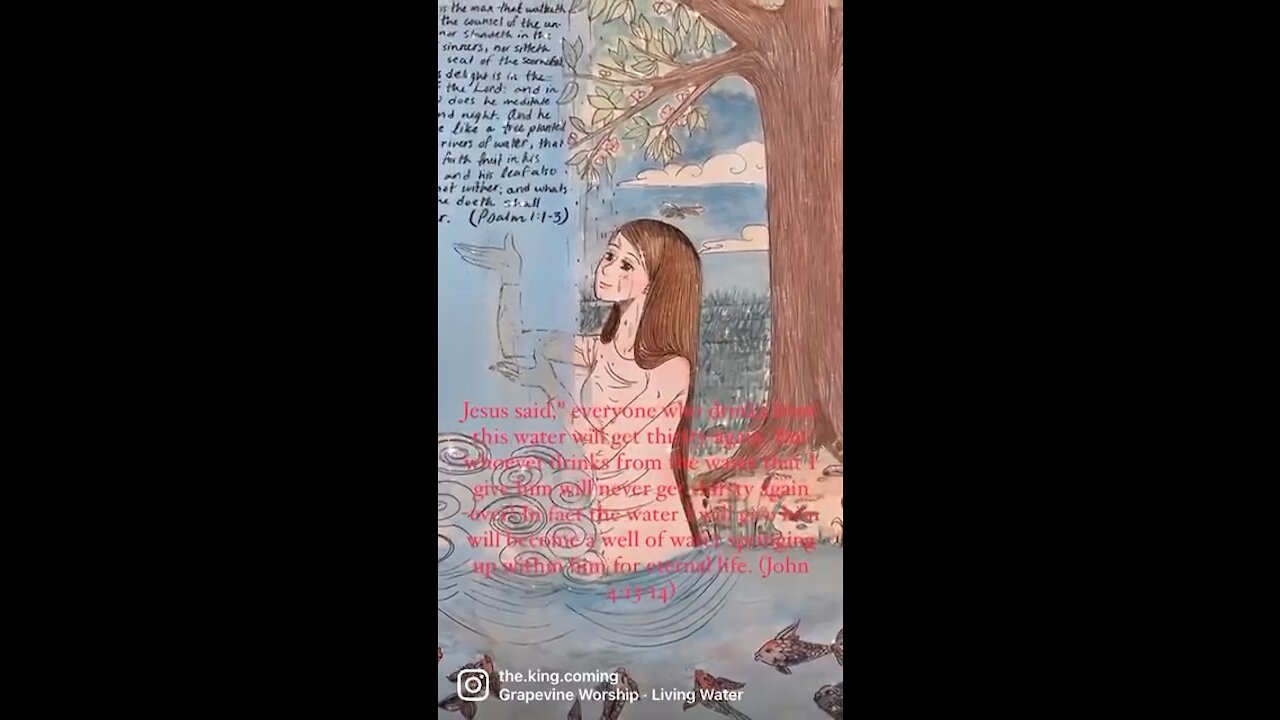 is the man that walketh
the counsel of the un-
nor standeth in the
sinners, nor sitteth
seat of the scornful
delight is in the
the Lord: and in
does he meditate
night. And he
like a tree planted
rivers of water, that
forth fruit in his
and his leaf also
not wither; and whats
doeth shall
r. (Psalm 1:1-3)
Jesus said," everyone who drinks from
this water will get thirsty again. But
whoever drinks from the water that I
give him will never get thirsty again
ever! In fact the water I will give him
will become a well of water springing
up within him for eternal life. (John
4:13-14)
the.king.coming
Grapevine Worship · Living Water